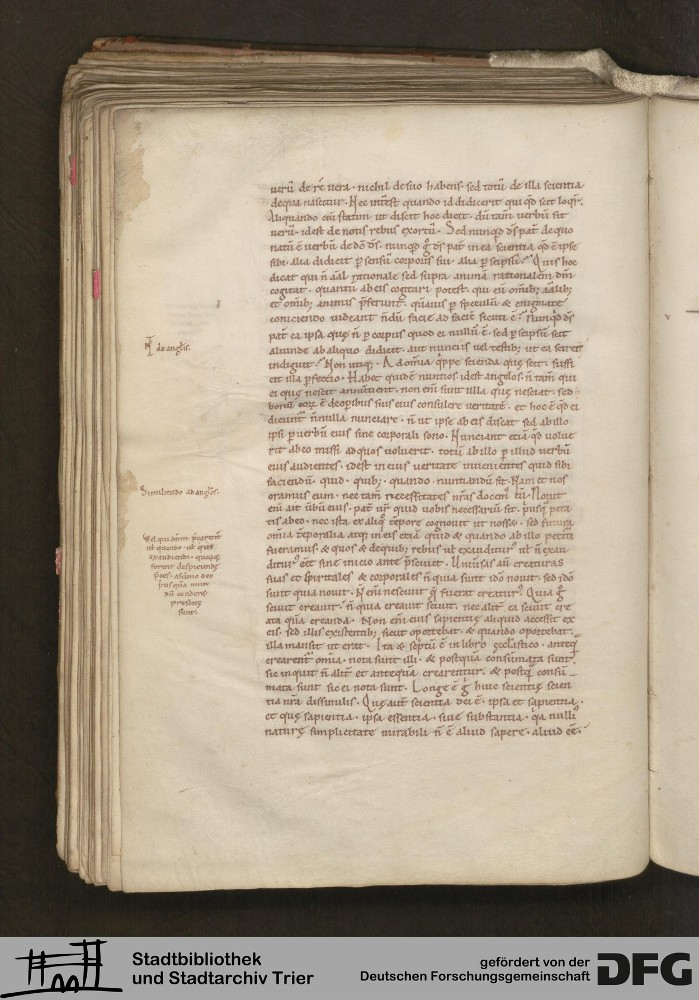 verū de rē vera · nichil de suo habens · sed totū de illa scientia
de qua nascitur · Nec intēest quando id didicerit qui qd scit loqr̄ ·
Aliquando em̄ statim ut discit hoc dicit · dū tam̄ verbū sit
verū · id est de notis rebus exortū · Sed nunqd dr̄s pat̄ de quo
natū ē verbū de dō ds̄ · nunqd g̊ ds̄ pat̄ in ea scientia qd ē ipse
sibi · alia didicit p sensū corporis sui · alia p seipsū · Quis hoc
dicat qui n̄ aāl rationale sed supra animā rationalem dm̄
cogitat · quantū ab eis cogitari potest · qui eū omīb; aālib;
et omīb; animis p̄ferunt · quāuis p speculū & enigmate
coniciendo videant n̄dū facie ad faciē sicuti ē · Nunqd ds̄
pat̄ ea ipsa quę n̄ p corpus quod ei nullū ē · sed p seipsū scit
aliunde ab aliquo didicit · aut nunciis vel testib; ut ea sciret
indiguit · Non utiq; · Ad omīa q̄ppe scienda quę scit · suffi
cit illa p̄fectio · Habet quidē nuntios · id est angelos · n̄ tam̄ qui
ei quę nescit annūtient · non em̄ sunt ulla quę nesciat · sed
bonū eorū ē de opībus suis eius consulere veritatē · et hoc ē qd ei
dicunt̄ n̄nulla nunciare · n̄ ut ipse ab eis discat sed ab illo
ipsi p verbū eius sine corporali sono · Nunciant etiā qd volue
rit ab eo missi ad quos voluerit · totū ab illo p illud verbū
eius audientes · id est in eius veritate invenientes quid sibi
faciendū · quid · quib; · quando · nuntiandū sit · Nam et nos
oramus eum · nec tam̄ necessitates nr̄as docem̄ eū · Novit
em̄ ait vbū eius · pat̄ vr̄ quid vobis necessariū sit · p̄usq̄ peta
tis ab eo · nec ista ex aliq̊ tēpore cognovit ut nosset · sed futura
omīa tēporalia atq; in eis etiā quid & quando ab illo petitū
fueramus · & quos & de quib; rebus vel exauditur̄ vel n̄ exau
ditur̄ eēt sine inicio ante p̄scivit · Universas aū creaturas
suas et spiritales & corporales n̄ quia sunt idō novit · sed idō
sunt quia novit · N em̄ nescivit q̄ fuerat creatur̄ · Quia g̊
scivit creavit · n̄ quia creavit scivit · nec alit̄ ea scivit cre
ata quā creanda · Non em̄ eius sapientię aliquid accessit ex
eis · sed illis existentib; sicut oportebat · & quando oportebat ·
illa mansit ut erat · Ita & sc̄ptū ē in libro ęcclāstico · anteq̄
crearent̄ omīa · nota sunt illi · & postquā consūmata sunt ·
sic inquit n̄ alit̄ et antequā crearentur · & postq̄ consū
mata sunt sic ei nota sunt · Longe ē g̊ huic scientię scien
tia nr̄a dissimilis · Quę aut̄ scientia dei ē · ipsa et sapientia ·
et quę sapientia · ipsa essentia · sive substantia · q̄a nulli᷒
naturę simplicitate mirabili n̄ ē aliud sapere · aliud eē ·
N̄ de angłis.
Similitudo ad angłos.
Stadtbibliothek
und Stadtarchiv Trier
gefördert von der
Deutschen Forschungsgemeinschaft DFG